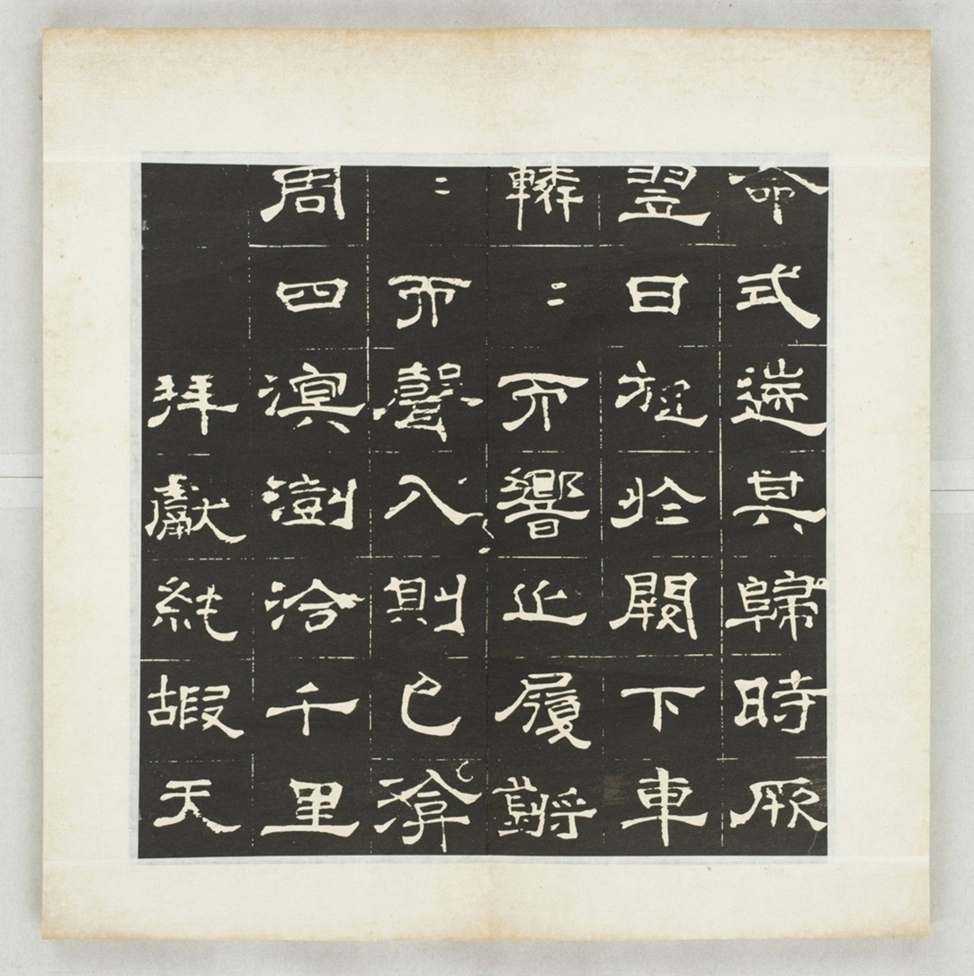 命式遄其歸時厥
翌日旋於闕下車
轔〻而響止履鏘
〻而聲入則已渰
周四溟澍洽千里
拜獻純嘏天